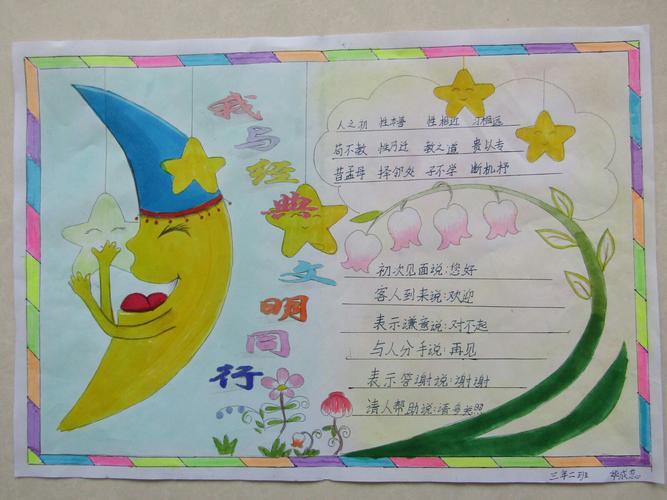 我与经典文明同行
人之初 性本善 性相近 习相远
苟不教 性乃迁 教之道 贵以专
昔孟母 择邻处 子不学 断机杼
初次见面说:您好
客人到来说:欢迎
表示谦意说:对不起
与人分手说:再见
表示答谢说:谢谢
请人帮助说:请多关照
三年二班